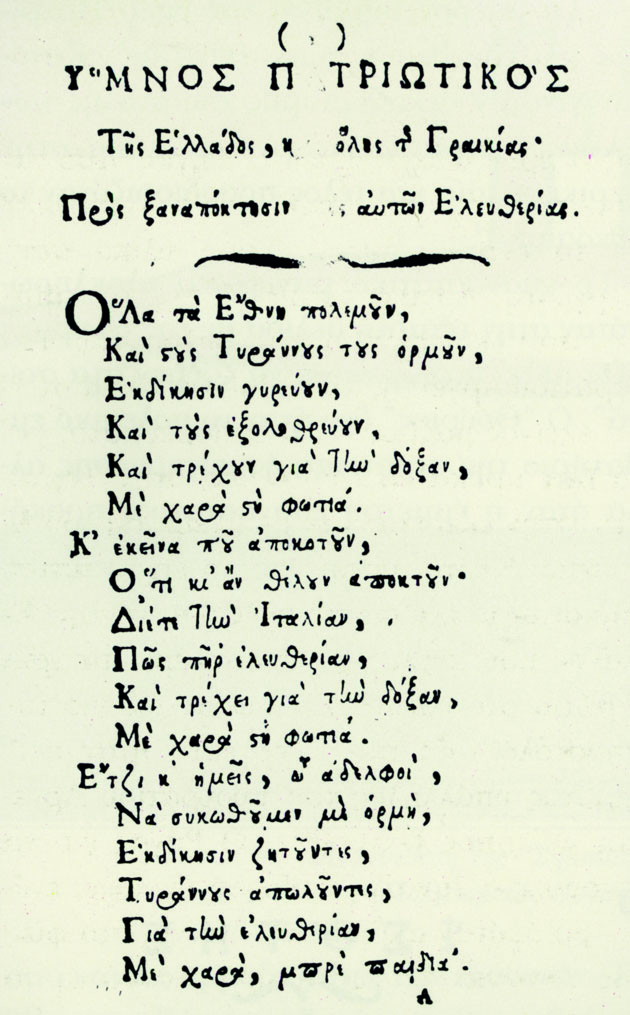 ( )
ὝΜΝΟΣ Π ΤΡΙΩΤΙΚΟ'Σ
Τῆς Ἑλλάδος, κ ὅλης τ͂ Γραικίας·
Πρὸς ξαναπόκτησιν αὐτῶν Ἐλευθερίας.
Ὅλα τὰ Ἔθνη πολεμοῦν,
Καὶ στοὺς Τυράννους τους ὁρμοῦν,
Ἐκδίκησιν γυρεύουν,
Καὶ τοὺς ἐξολοθρεύουν,
Καὶ τρέχουν γιὰ τὴν δόξαν,
Μὲ χαρὰ στὴ φωτιά.
Κ' ἐκεῖνα ποῦ ἀποκοτοῦν,
Ὅτι κι' ἂν θέλουν ἀποκτοῦν·
Διέτε τὴν Ἰταλίαν,
Πῶς πῆρ' ἐλευθερίαν,
Καὶ τρέχει γιὰ τὴν δόξαν,
Μὲ χαρὰ στὴ φωτιά.
Ἔτζι κ' ἡμεῖς, ὦ ἀδελφοὶ,
Νὰ συκωθοῦμεν μὲ ὁρμὴ,
Ἐκδίκησιν ζητοῦντες,
Τυράννους ἀπωλοῦντες,
Γιὰ τὴν ἐλευθερίαν,
Μὲ χαρὰ, μπρὲ παιδιά.
Α